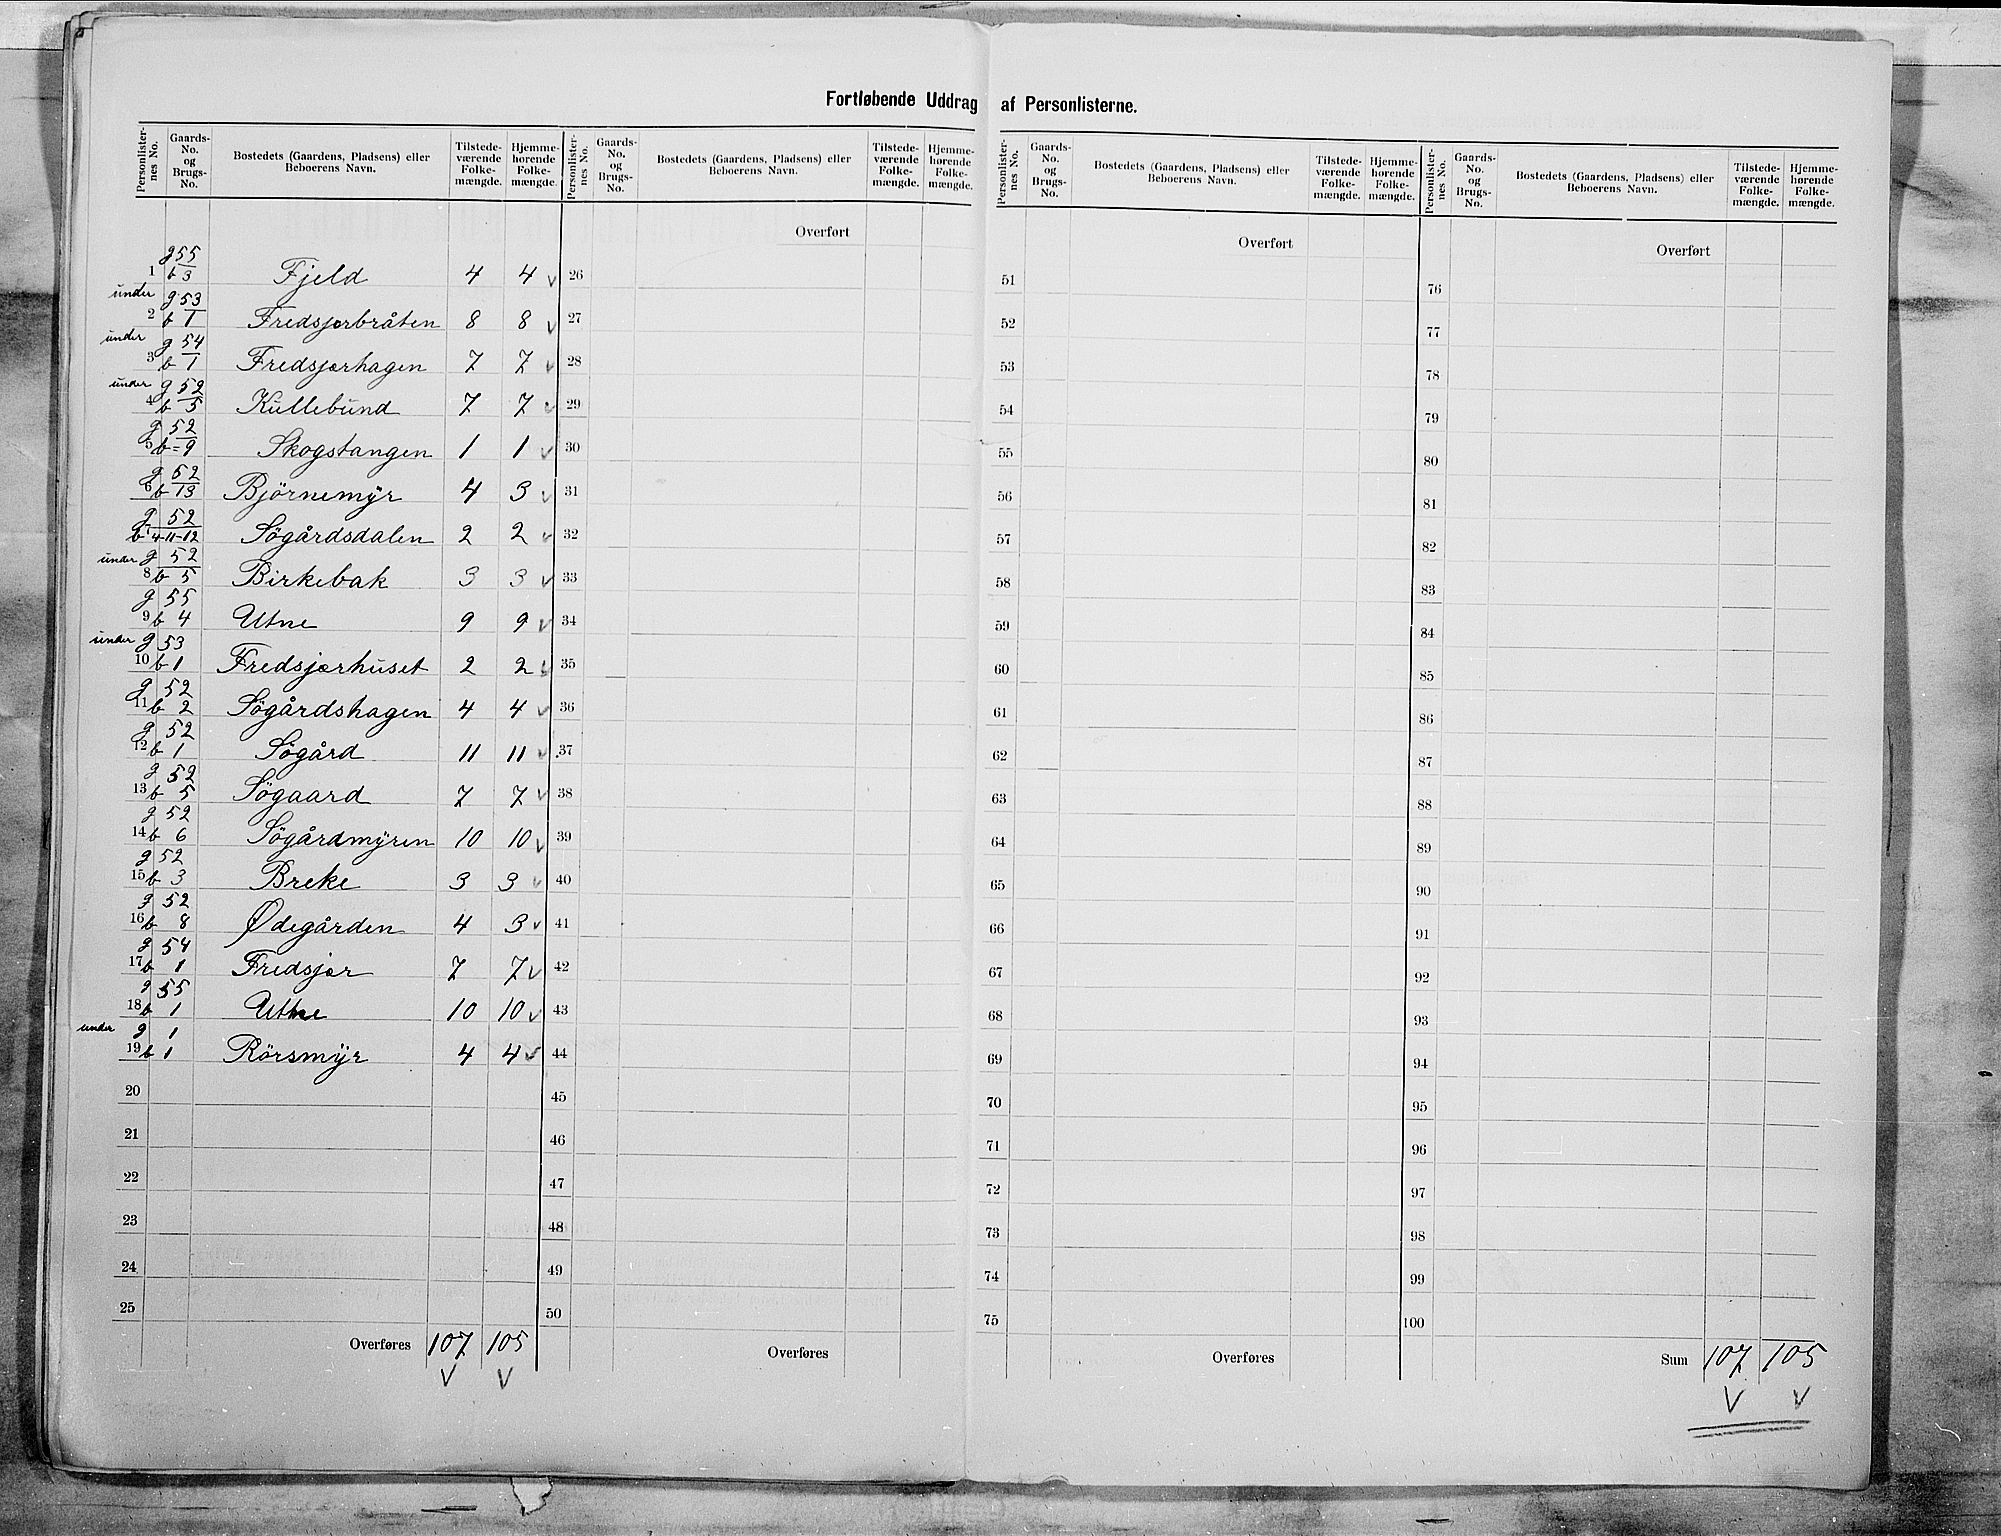 Fortløbende Uddrag af Personlisterne.
Personlister-nes No. | Gaards-No. og Brugs-No. | Bostedets (Gaardens, Pladsens) eller Beboerens Navn. | Tilstede-værende Folke-mængde. | Hjemme-hørende Folke-mængde. | Personlister-nes No. | Gaards-No. og Brugs-No. | Bostedets (Gaardens, Pladsens) eller Beboerens Navn. | Tilstede-værende Folke-mængde. | Hjemme-hørende Folke-mængde. | Personlister-nes No. | Gaards-No. og Brugs-No. | Bostedets (Gaardens, Pladsens) eller Beboerens Navn. | Tilstede-værende Folke-mængde. | Hjemme-hørende Folke-mængde. | Personlister-nes No. | Gaards-No. og Brugs-No. | Bostedets (Gaardens, Pladsens) eller Beboerens Navn. | Tilstede-værende Folke-mængde. | Hjemme-hørende Folke-mængde.
Overført Overført Overført
1 g 55 b 3 Fjeld 4 4 v 26 51 76
under 2 g 53 b 1 Fredsjørbråten 8 8 v 27 52 77
under 3 g 54 b 1 Fredsjørhagen 7 7 v 28 53 78
under 4 g 52 b 5 Kullebund 7 7 v 29 54 79
5 g 52 b = 9 Skogstangen 1 1 v 30 55 80
6 g 52 b 13 Björnemÿr 4 3 v 31 56 81
7 g 52 b 4-11-12 Sögårdsdalen 2 2 v 32 57 82
under 8 g 52 b 5 Birkebak 3 3 v 33 58 83
9 g 55 b 4 Utne 9 9 v 34 59 84
under 10 g 53 b 1 Fredsjørhuset 2 2 v 35 60 85
11 g 52 b 2 Sögårdshagen 4 4 v 36 61 86
12 g 52 b 1 Sögård 11 11 v 37 62 87
13 g 52 b 5 Sögaard 7 7 v 38 63 88
14 g 52 b 6 Sögårdmÿren 10 10 v 39 64 89
15 g 52 b 3 Breke 3 3 v 40 65 90
16 g 52 b 8 Ødegården 4 3 v 41 66 91
17 g 54 b 1 Fredsjør 7 7 v 42 67 92
18 g 55 b 1 Utne 10 10 v 43 68 93
under 19 g 1 b 1 Rörsmÿr 4 4 v 44 69 94
20 45 70 95
21 46 71 96
22 47 72 97
23 48 73 98
24 49 74 99
25 50 75 100
Overføres 107 105 Overføres Overføres Sum 107 105
v v v v